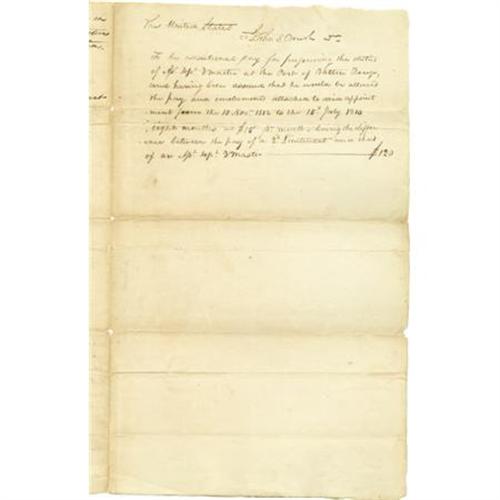 The United States
To John S Dr
To his additional pay for performing the duties
of As. Dpt. Qmaster at the Post of Baton Rouge,
and having been assured that he would be allowed
the pay and emoluments attached to said appoint
ment from the 18 Nov. 1812 to the 18th July 1813
eight months at $15 pr month, being the differ
ence between the pay of a 2d Lieutenant and that
of an As. Dpt. Qmaster $120